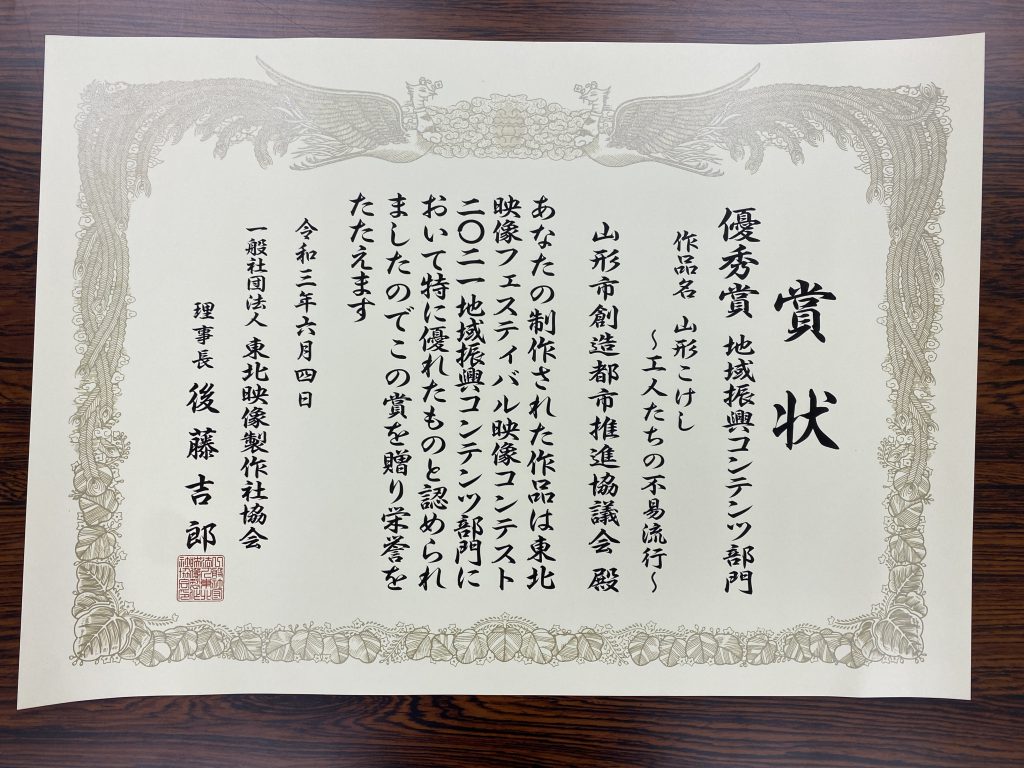 賞状
優秀賞 地域振興コンテンツ部門
作品名 山形こけし
～工人たちの不易流行～
山形市創造都市推進協議会 殿
あなたの制作された作品は東北
映像フェスティバル映像コンテスト
二〇二一地域振興コンテンツ部門に
おいて特に優れたものと認められ
ましたのでこの賞を贈り栄誉を
たたえます
令和三年六月四日
一般社団法人 東北映像製作社協会
理事長 後藤吉郎